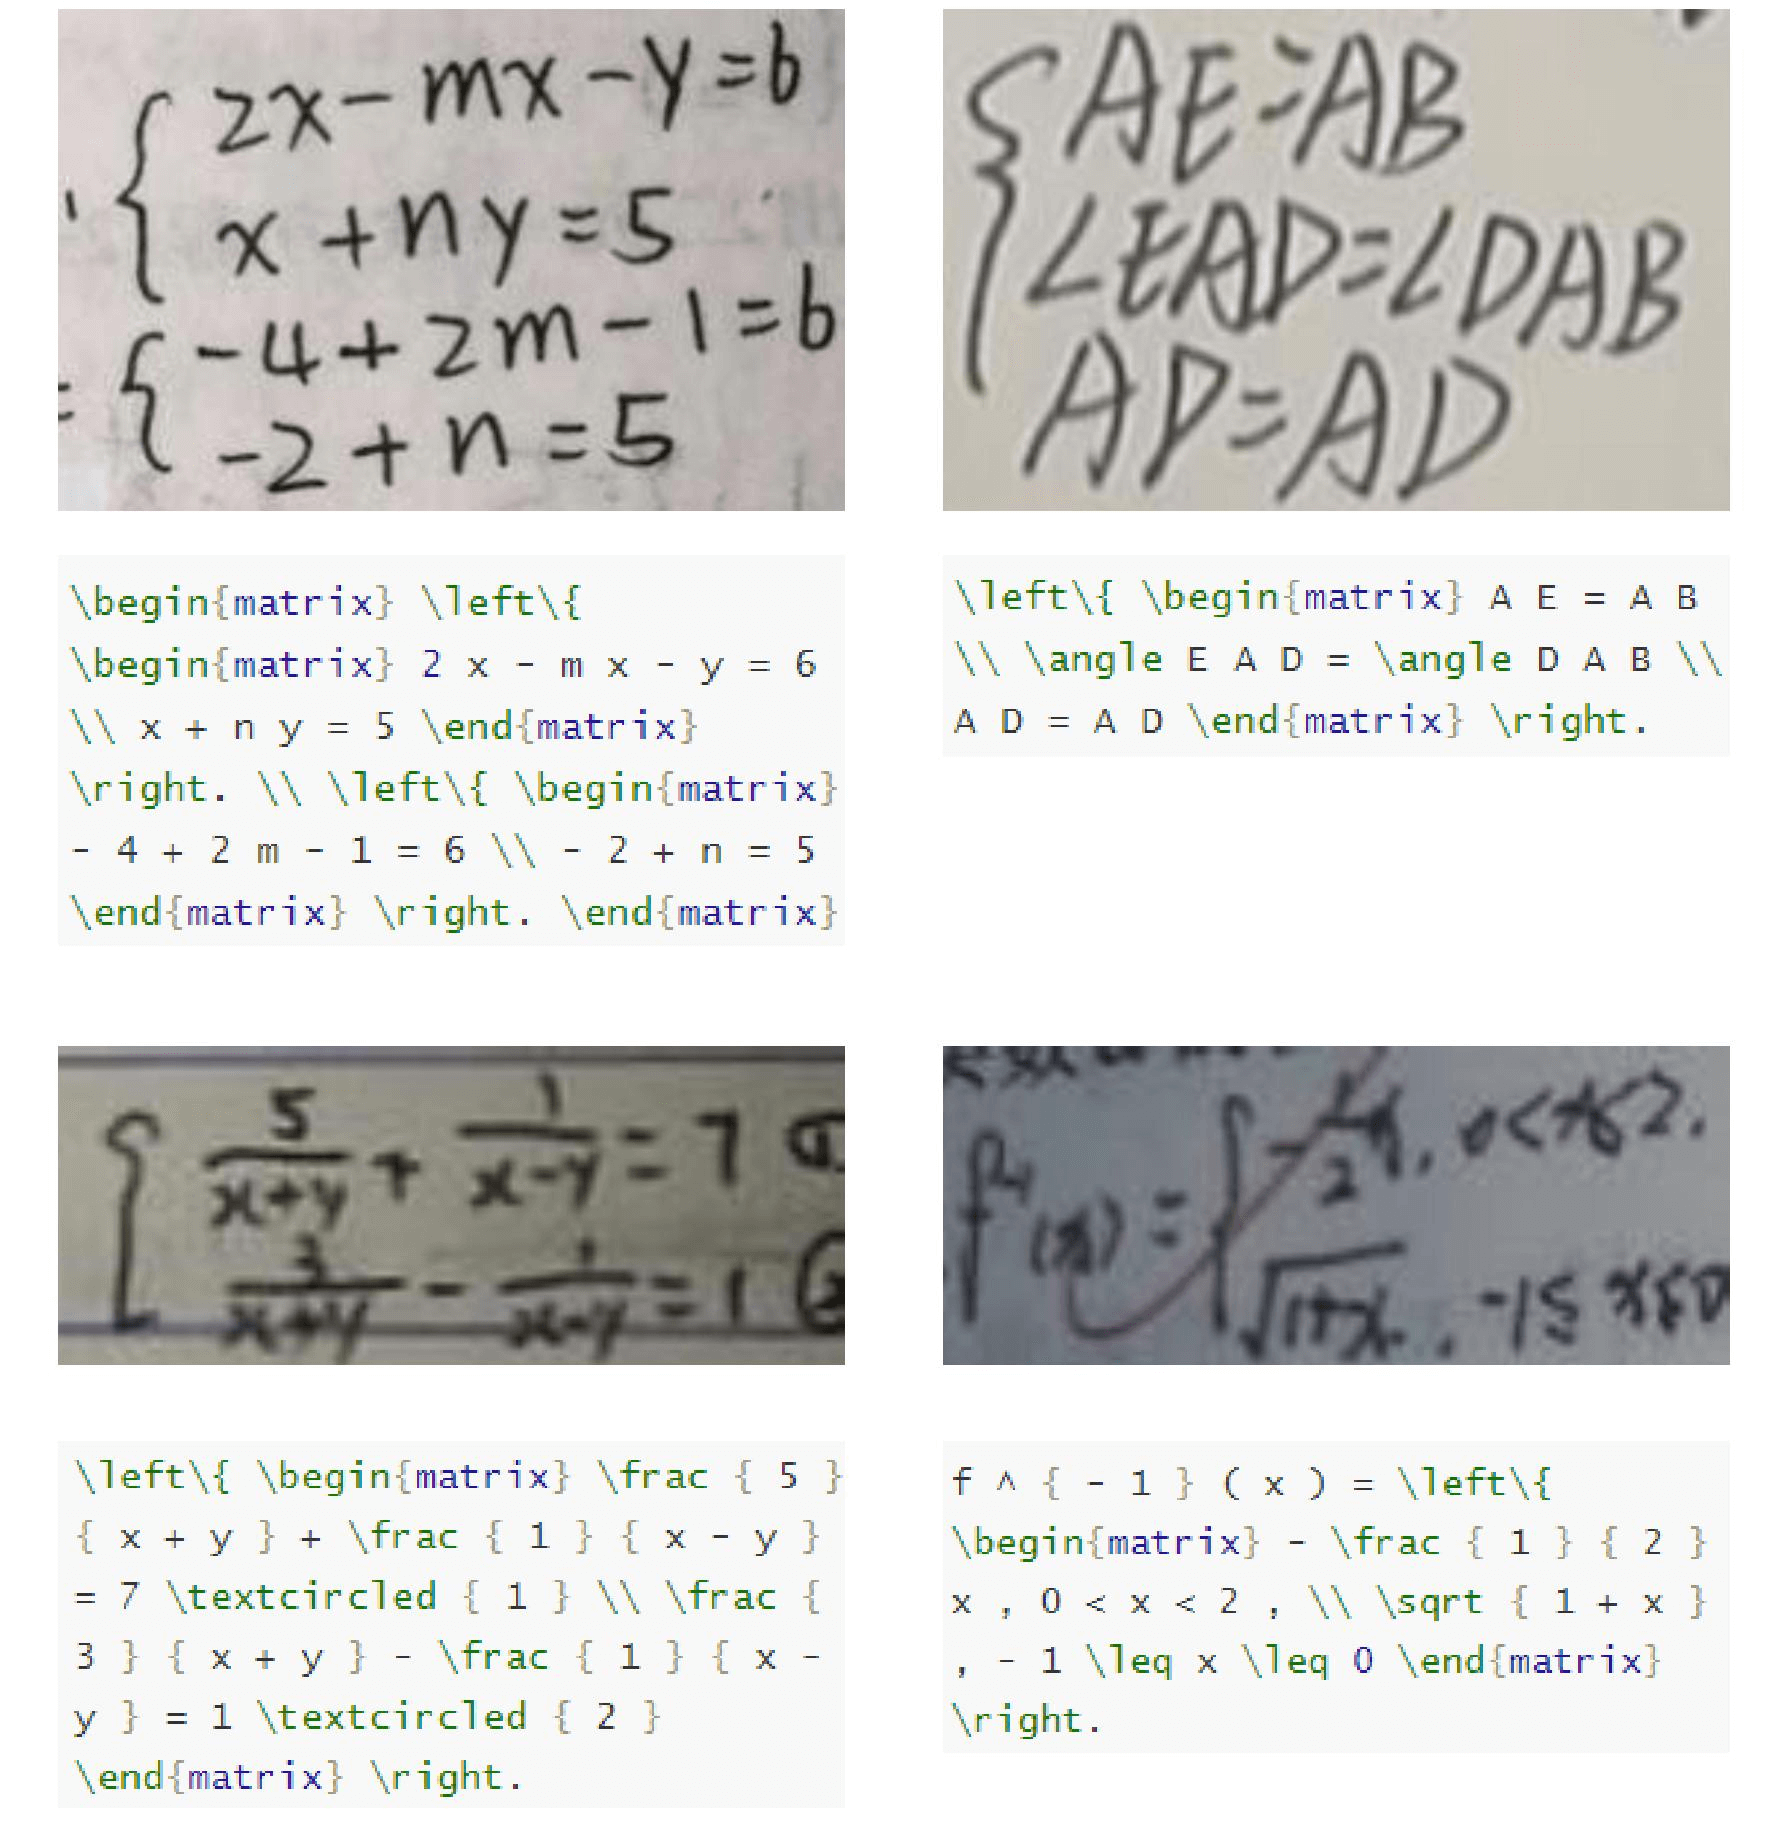 2x-mx-y=6
x+ny=5
-4+2m-1=6
-2+n=5
\begin{matrix} \left\{
\begin{matrix} 2 x - m x - y = 6
\\ x + n y = 5 \end{matrix}
\right. \\ \left\{ \begin{matrix}
- 4 + 2 m - 1 = 6 \\ - 2 + n = 5
\end{matrix} \right. \end{matrix}
AE=AB
∠EAD=∠DAB
AD=AD
\left\{ \begin{matrix} A E = A B
\\ \angle E A D = \angle D A B \\
A D = A D \end{matrix} \right.
5/(x+y) + 1/(x-y) = 7 ①
3/(x+y) - 1/(x-y) = 1 ②
\left\{ \begin{matrix} \frac { 5 }
{ x + y } + \frac { 1 } { x - y }
= 7 \textcircled { 1 } \\ \frac {
3 } { x + y } - \frac { 1 } { x -
y } = 1 \textcircled { 2 }
\end{matrix} \right.
f⁻¹(x) = { -1/2 x, 0<x≤2.
√(1+x), -1≤x≤0
f ^ { - 1 } ( x ) = \left\{
\begin{matrix} - \frac { 1 } { 2 }
x , 0 < x < 2 , \\ \sqrt { 1 + x }
, - 1 \leq x \leq 0 \end{matrix}
\right.